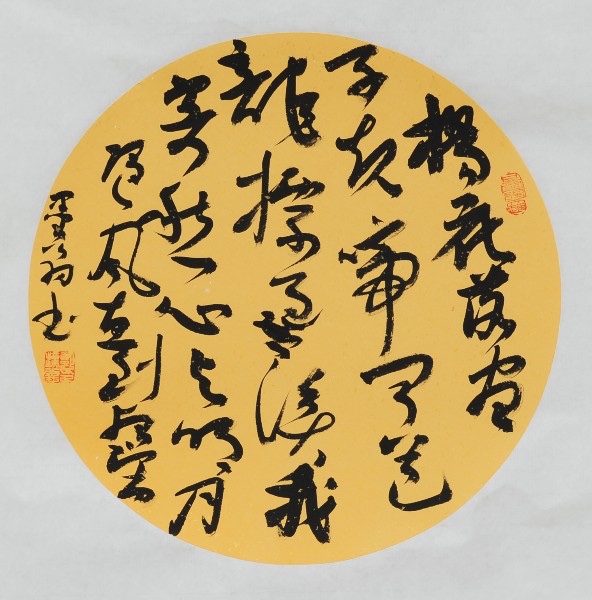 楊花落盡
子規啼聞道
龍標過五溪我
寄愁心与明月
随風直到夜郎西
墨翁书